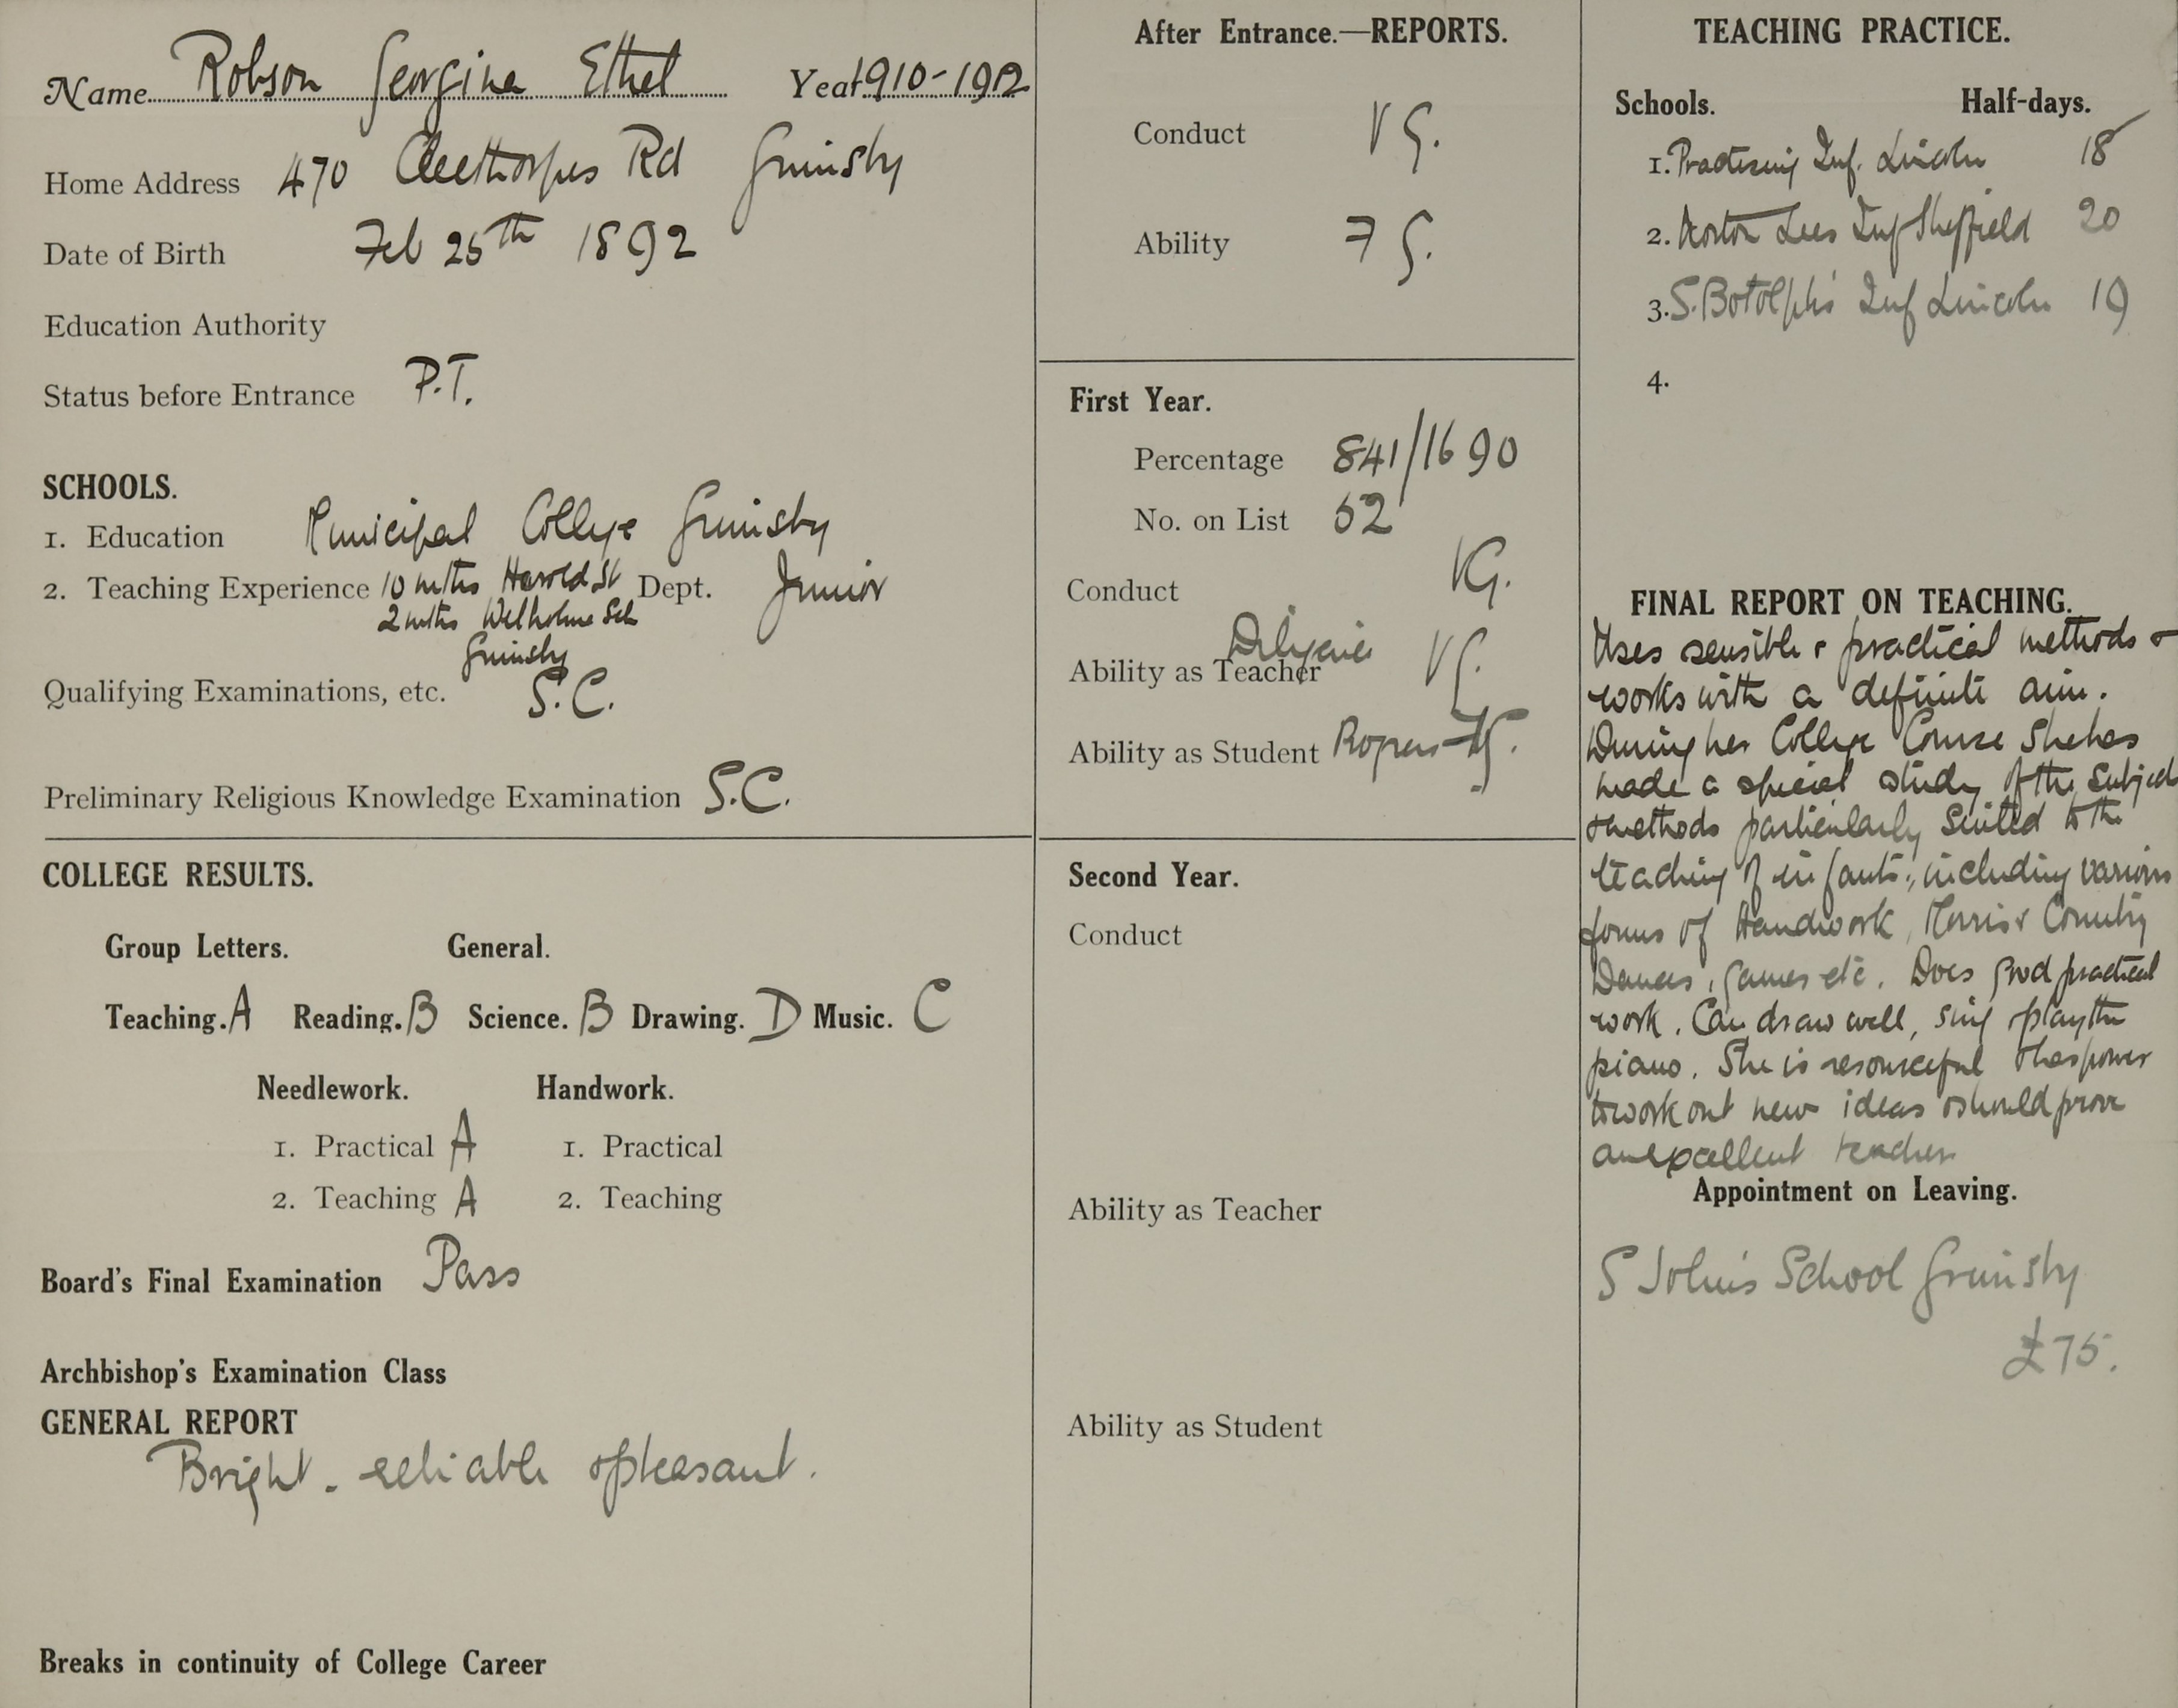 Name Robson Georgina Ethel Year 1910-1912
Home Address 470 Cleethorpes Rd Grimsby
Date of Birth Feb 25th 1892
Education Authority
Status before Entrance P.T.
SCHOOLS.
1. Education Municipal College Grimsby
2. Teaching Experience 10 mths Harold St Dept. Junior
2 mths Welholme Sch
Grimsby
Qualifying Examinations, etc. S.C.
Preliminary Religious Knowledge Examination S.C.
COLLEGE RESULTS.
Group Letters. General.
Teaching. A Reading. B Science. B Drawing. D Music. C
Needlework. Handwork.
1. Practical A 1. Practical
2. Teaching A 2. Teaching
Board's Final Examination Pass
Archbishop's Examination Class
GENERAL REPORT
Bright - reliable & pleasant.
Breaks in continuity of College Career
After Entrance.—REPORTS.
Conduct VG.
Ability FG.
First Year.
Percentage 841/1690
No. on List 52
Conduct VG.
Ability as Teacher VG.
Ability as Student
Second Year.
Conduct
Ability as Teacher
Ability as Student
TEACHING PRACTICE.
Schools. Half-days.
1. Practising Inf. Lincoln 18
2. Norton Lees Inf Sheffield 20
3. S. Botolph's Inf Lincoln 19
4.
FINAL REPORT ON TEACHING.
Uses sensible & practical methods &
works with a definite aim.
During her College Course she has
made a special study of the subjects
& methods particularly suited to the
teaching of infants, including various
forms of Handwork, Morris & Country
Dances, games etc. Does good practical
work. Can draw well, sing & play the
piano. She is resourceful & has power
to work out new ideas & should prove
an excellent teacher
Appointment on Leaving.
S John's School Grimsby
£75.